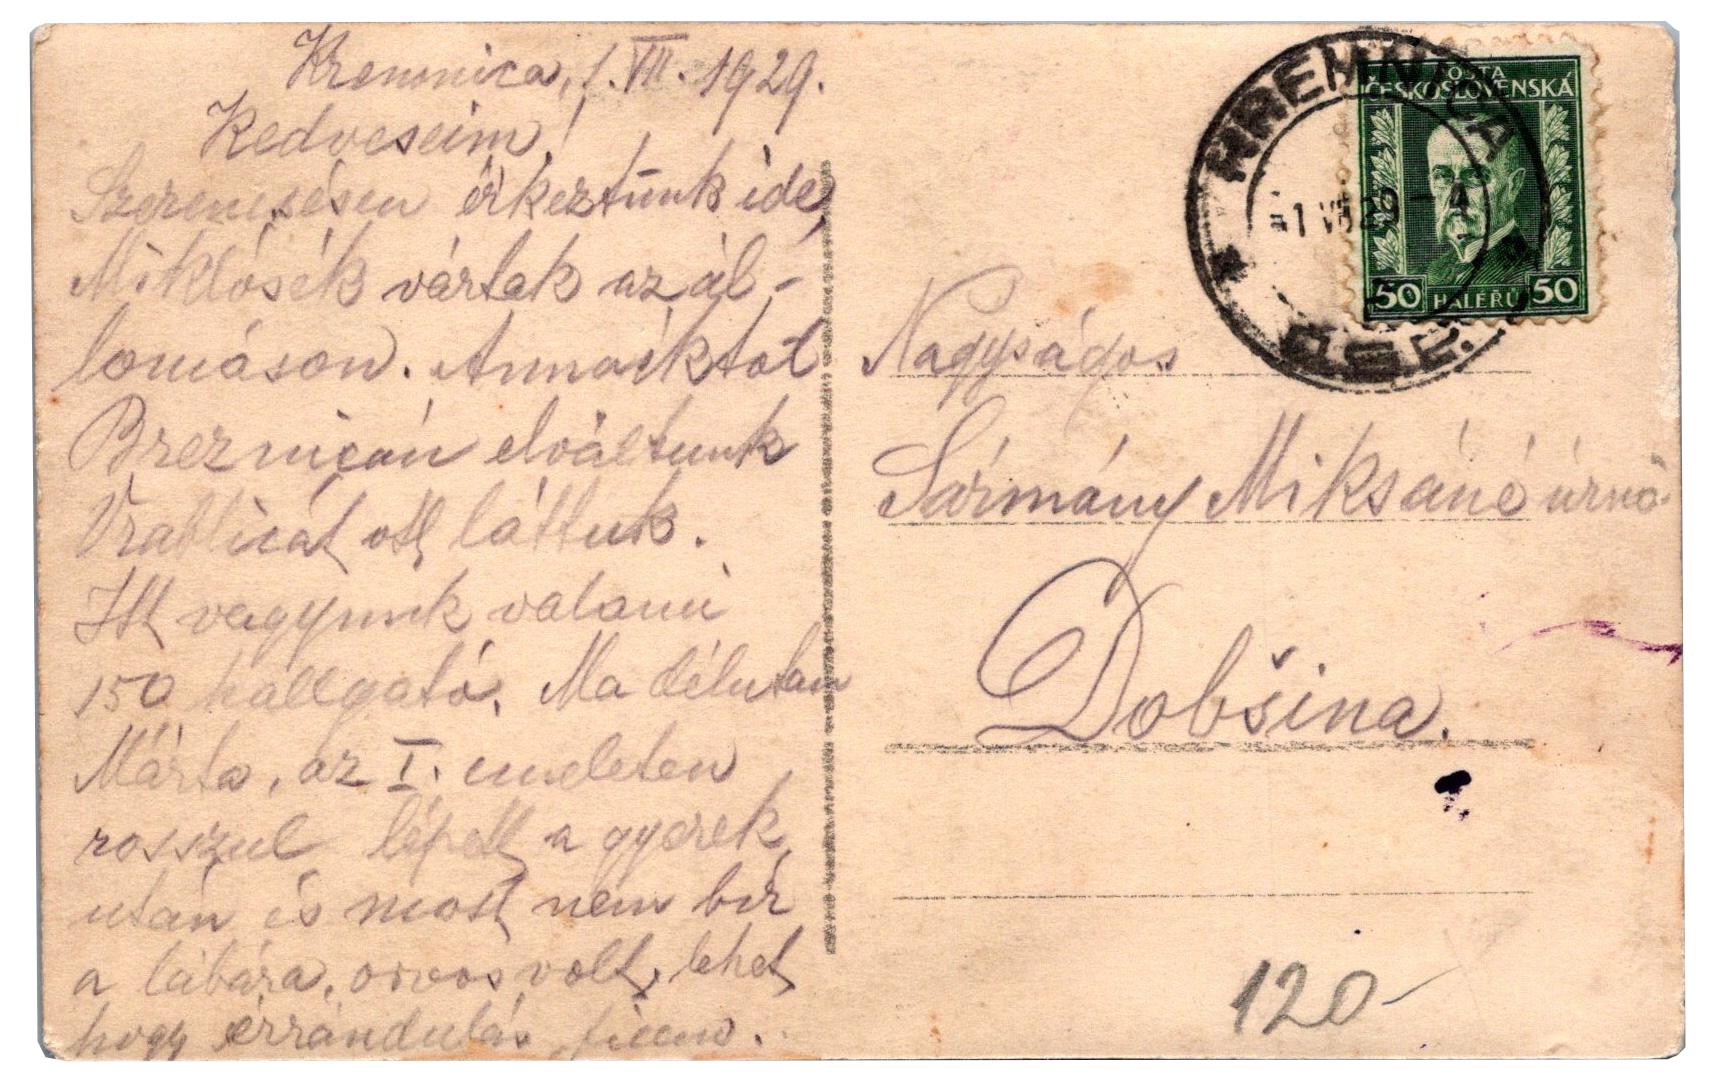 Kremnica, 1. VII. 1929.
Kedveseim!
Szerencsésen érkeztünk ide,
Miklósék vártak az ál-
lomáson. Annáéktól
Breznicán elváltunk
Vrablicát ott láttuk.
Itt vagyunk valami
150 hallgató. Ma délután
Márta, az I. emeleten
rosszul lépett a gyerek
után és most nem bír
a lábára, orvos volt, lehet
hogy érrándulás
POSTA
ČESKOSLOVENSKÁ
50 HALÉŘŮ 50
KREMNICA
-1 VII 29 - 4
ČSR.
Nagyságos
Sármány Miksáné úrnő
Dobšina.
120-